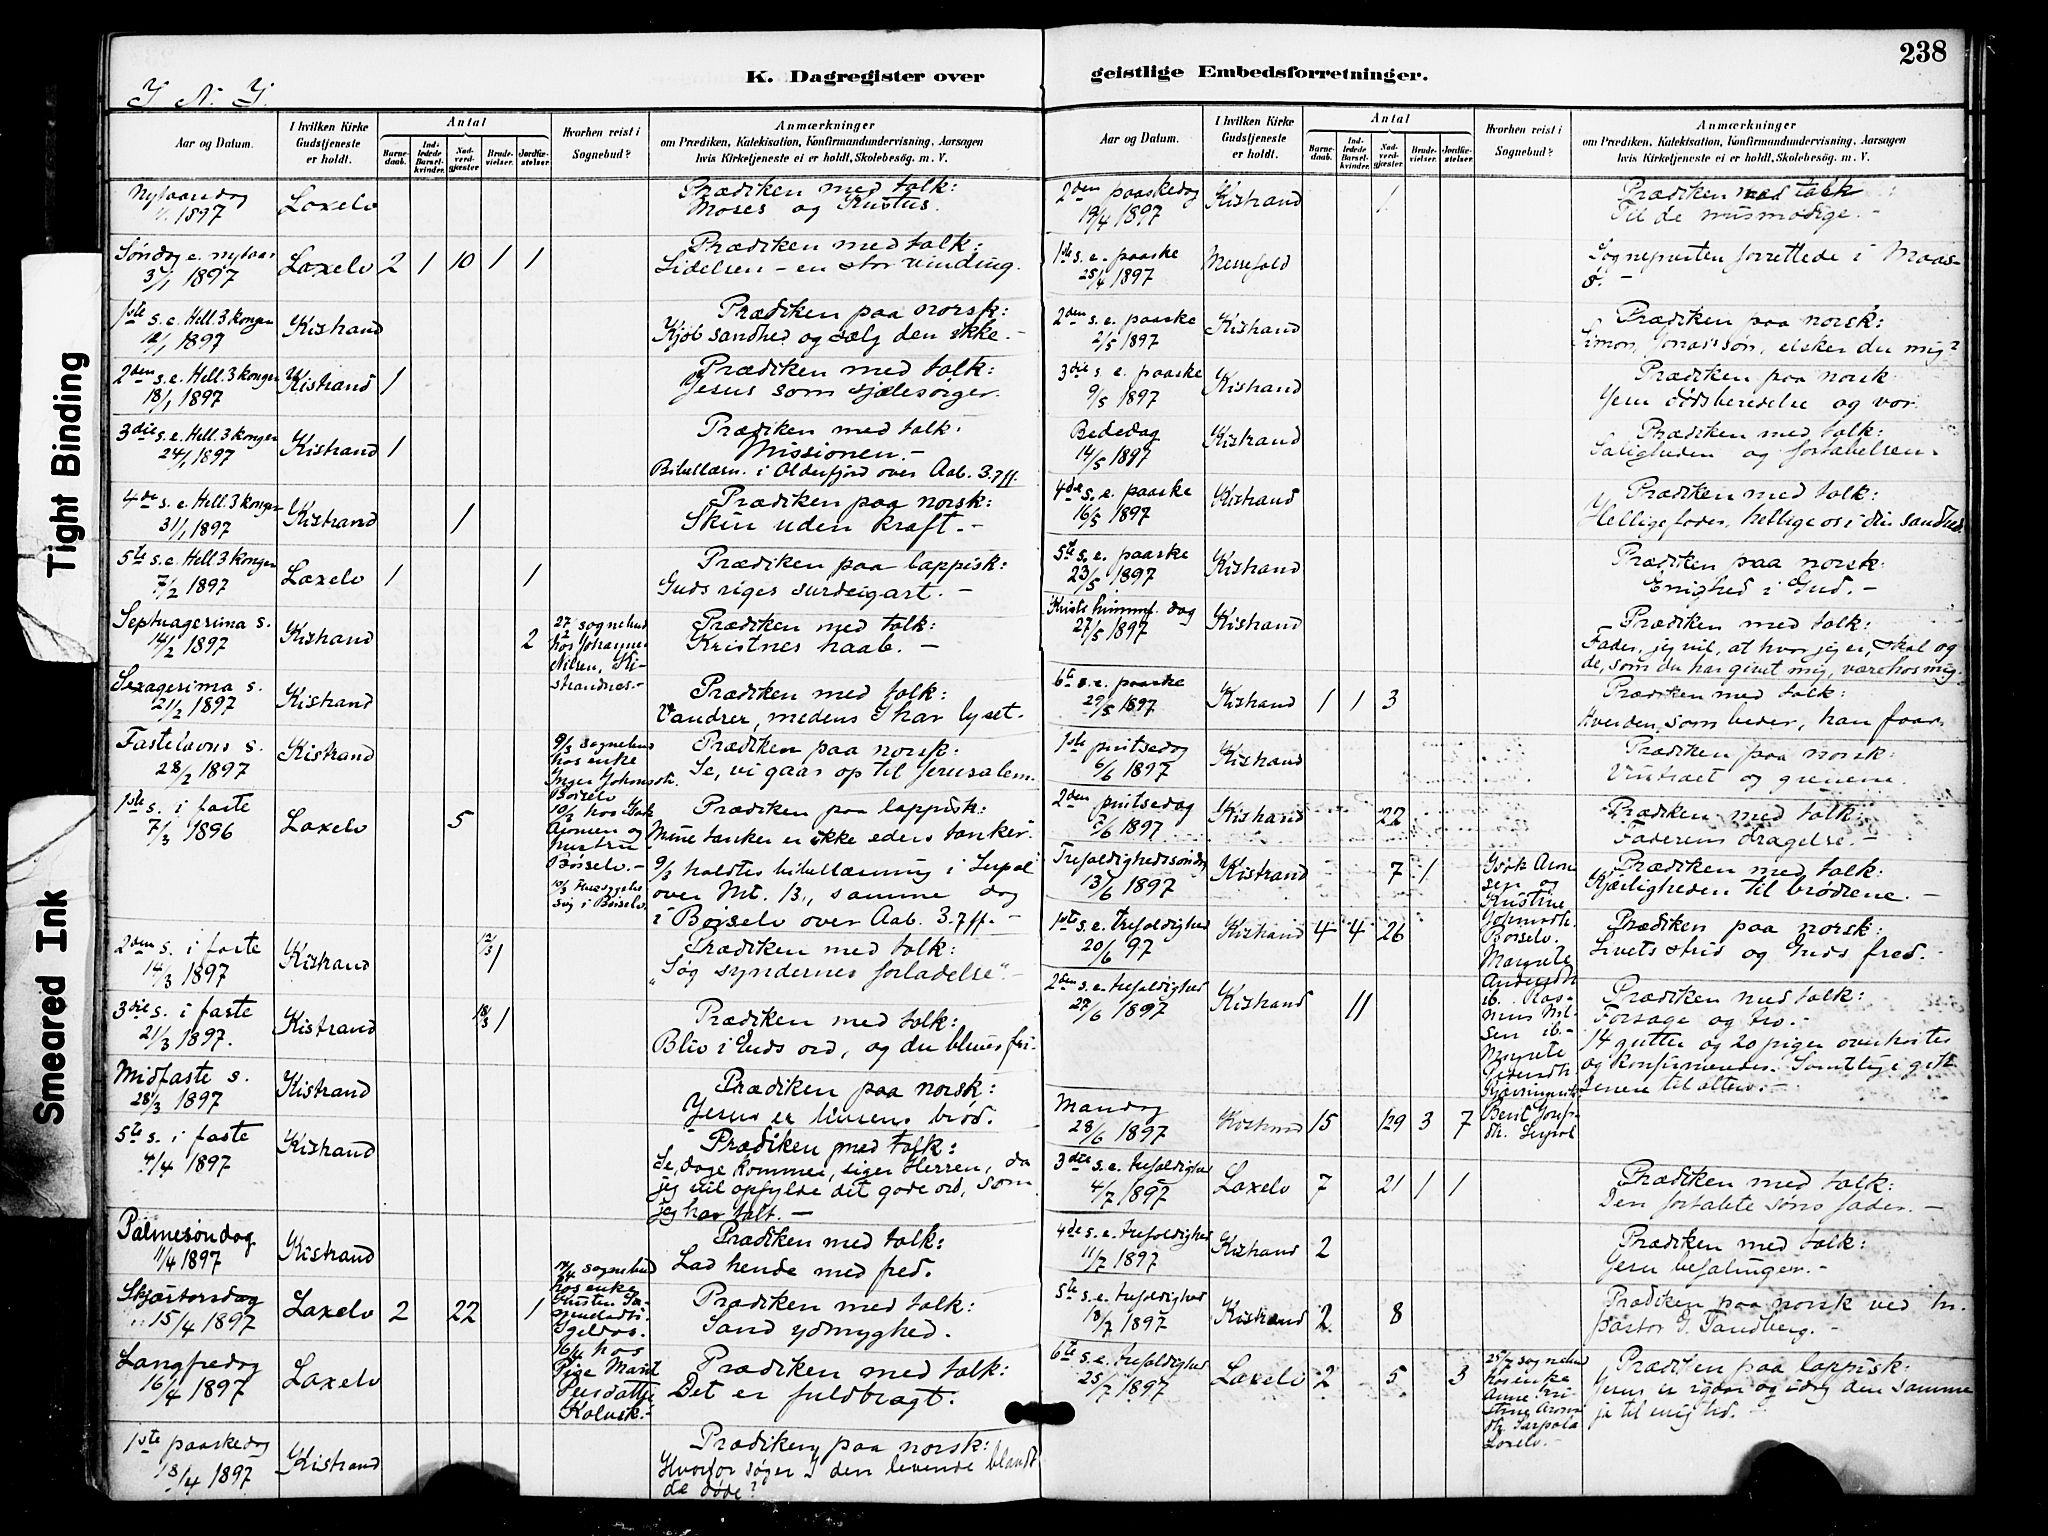 238
K. Dagregister over geistlige Embedsforretninger.
J. N. J.
Tight Binding
Smeared Ink
Aar og Datum.
I hvilken Kirke Gudstjeneste er holdt.
Antal
Barnedaab.
Indledede Barselkvinder.
Nadverdgjester
Brudevielser.
Jordfæstelser.
Hvorhen reist i Sognebud?
Anmærkninger
om Prædiken, Katekisation, Konfirmandundervisning, Aarsagen
hvis Kirketjeneste ei er holdt, Skolebesög. m. V.
Nytaarsdag 1/1 1897 Laxelv Prædiken med tolk:
Moses og Kristus.
Søndag e. nytaar 3/1 1897 Laxelv 2 1 10 1 1 Prædiken med tolk:
Lidelsen – en stor vinding.
1ste s. e. Hell. 3 konger 1897 Kistrand Prædiken paa norsk:
Kjøb sandhed og sælg den ikke. –
2den s. e. Hell. 3 konger 18/1 1897 Kistrand 1 Prædiken med tolk:
Jesus som sjælesørger.
3die s. e. Hell. 3 konger 24/1 1897 Kistrand 1 Prædiken med tolk:
Missionen. –
Bibellæsn. i Olderfjord over Aab. 3.7 ff.
4de s. e. Hell. 3 konger 31/1 1897 Kistrand 1 Prædiken paa norsk:
Skin uden kraft. –
5te s. e. Hell. 3 konger 7/2 1897 Laxelv 1 1 Prædiken paa lappisk:
Guds riges surdeigart. –
Septuagesima s. 14/2 1897 Kistrand 2 27/2 sognebud
hos Johannes
Nilsen, Ki-
strandnes. –
Prædiken med tolk:
Kristnes haab. –
Sexagesima s. 21/2 1897 Kistrand Prædiken med tolk:
Vandrer, medens I har lyset.
Fastelavns s. 28/2 1897 Kistrand 9/3 sognebud
hos enke
Inger Johnsdt.
Børselv
Prædiken paa norsk:
Se, vi gaar op til Jerusalem.
1ste s. i faste 7/3 1896 Laxelv 5 10/3 hos Isak
Aronsen og
hustru
Børselv. –
i Børselv.
Prædiken paa lappisk:
Mine tanker er ikke eders tanker.
9/3 holdtes bibellæsning i
over Mt. 13., samme dag
i Børselv over Aab. 3.7 ff. –
2den s. i faste 14/3 1897 Kistrand 12/3 1 Prædiken med tolk:
„Søg syndernes forladelse“ –
3die s. i faste 21/3 1897. Kistrand 18/3 1 Prædiken med tolk:
Bliv i Guds ord, og du blive fri. –
Midfaste s. 28/3 1897 Kistrand Prædiken paa norsk:
Jesus er livsens brød.
5te s. i faste 4/4 1897 Kistrand Prædiken med tolk:
Se, dage kommer, siger Herren, da
jeg vil opfylde det gode ord, som
jeg har talt. –
Palmesøndag 11/4 1897 Kistrand Prædiken med tolk:
Lad hende med fred.
Skjærtorsdag 15/4 1897 Laxelv 2 22 1 sognebud
hos enke
Prædiken med tolk:
Sand ydmyghed.
Langfredag 16/4 1897 Laxelv 16/4 hos
Pige Marit
Persdatter
Prædiken med tolk:
Det er fuldbragt.
1ste paaskedag 18/4 1897 Kistrand Prædiken paa norsk:
Hvorfor søger I den levende blandt
de døde?
Aar og Datum.
I hvilken Kirke Gudstjeneste er holdt.
Antal
Barnedaab.
Indledede Barselkvinder.
Nadverdgjester
Brudevielser.
Jordfæstelser.
Hvorhen reist i Sognebud?
Anmærkninger
om Prædiken, Katekisation, Konfirmandundervisning, Aarsagen
hvis Kirketjeneste ei er holdt, Skolebesög. m. V.
2den paaskedag 19/4 1897 Kistrand 1 Prædiken med tolk:
Til de mismodige. –
1ste s. e. paaske 25/4 1897 Messefald Sognepresten forrettede i Maas-
ø. –
2den s. e. paaske 2/5 1897 Kistrand Prædiken paa norsk:
Simon, Jonas' søn, elsker du mig?
3die s. e. paaske 9/5 1897 Kistrand Prædiken paa norsk:
Jesu dødsberedelse og vor.
Bededag 14/5 1897 Kistrand Prædiken med tolk:
Saligheden og fortabelsen.
4de s. e. paaske 16/5 1897 Kistrand Prædiken med tolk:
Hellige fader, hellige os i din sandhed.
5te s. e. paaske 23/5 1897 Kistrand Prædiken paa norsk:
Enighed i Gud. –
Kristi himmf. dag 27/5 1897 Kistrand Prædiken med tolk:
Fader, jeg vil, at hvor jeg er, skal og
de, som du har givet mig, være hos mig.
6te s. e. paaske 29/5 1897 Kistrand 1 1 3 Prædiken med tolk:
Hverden, som beder, han faar.
1ste pintsedag 6/6 1897 Kistrand Prædiken paa norsk:
Vintræet og grenene.
2den pintsedag 1897 Kistrand 22 Prædiken med tolk:
Faderens dragelse. –
Trefoldighedssøndag 13/6 1897 Kistrand 7 1 Isak Aron-
sen og
Kristine
Prædiken med tolk:
Kjærligheden til brødrene. –
1ste s. e. trefoldighed 20/6 97 Kistrand 4 4 26 Børselv.
Margrete
Prædiken paa norsk:
Livets strid og Guds fred. –
2den s. e. trefoldighed 27/6 1897 Kistrand 11 ib. Ras-
mus Nil-
sen ib. –
Margrete
Prædiken med tolk:
Forsage og tro. –
14 gutter og 20 piger overhørtes
og konfirmeredes. Samtlige gik
senere til alters. –
Mandag 28/6 1897 Kistrand 15 129 3 7 Berit
3die s. e. trefoldighed 4/7 1897 Laxelv 7 21 1 1 Prædiken med tolk:
Den fortabte søns fader. –
4de s. e. trefoldighed 11/7 1897 Kistrand 2 Prædiken med tolk:
Jesu befalinger. –
5te s. e. trefoldighed 18/7 1897 Kistrand 2 8 Prædiken paa norsk ved hr.
pastor G. Sandberg. –
6te s. e. trefoldighed 25/7 1897 Laxelv 2 5 3 25/7 sognebud
hos enke
Anne Kri-
stine Arons-
dt.
Laxelv. –
Prædiken paa lappisk:
Jesus er igaar og idag den samme
ja til evig tid. –